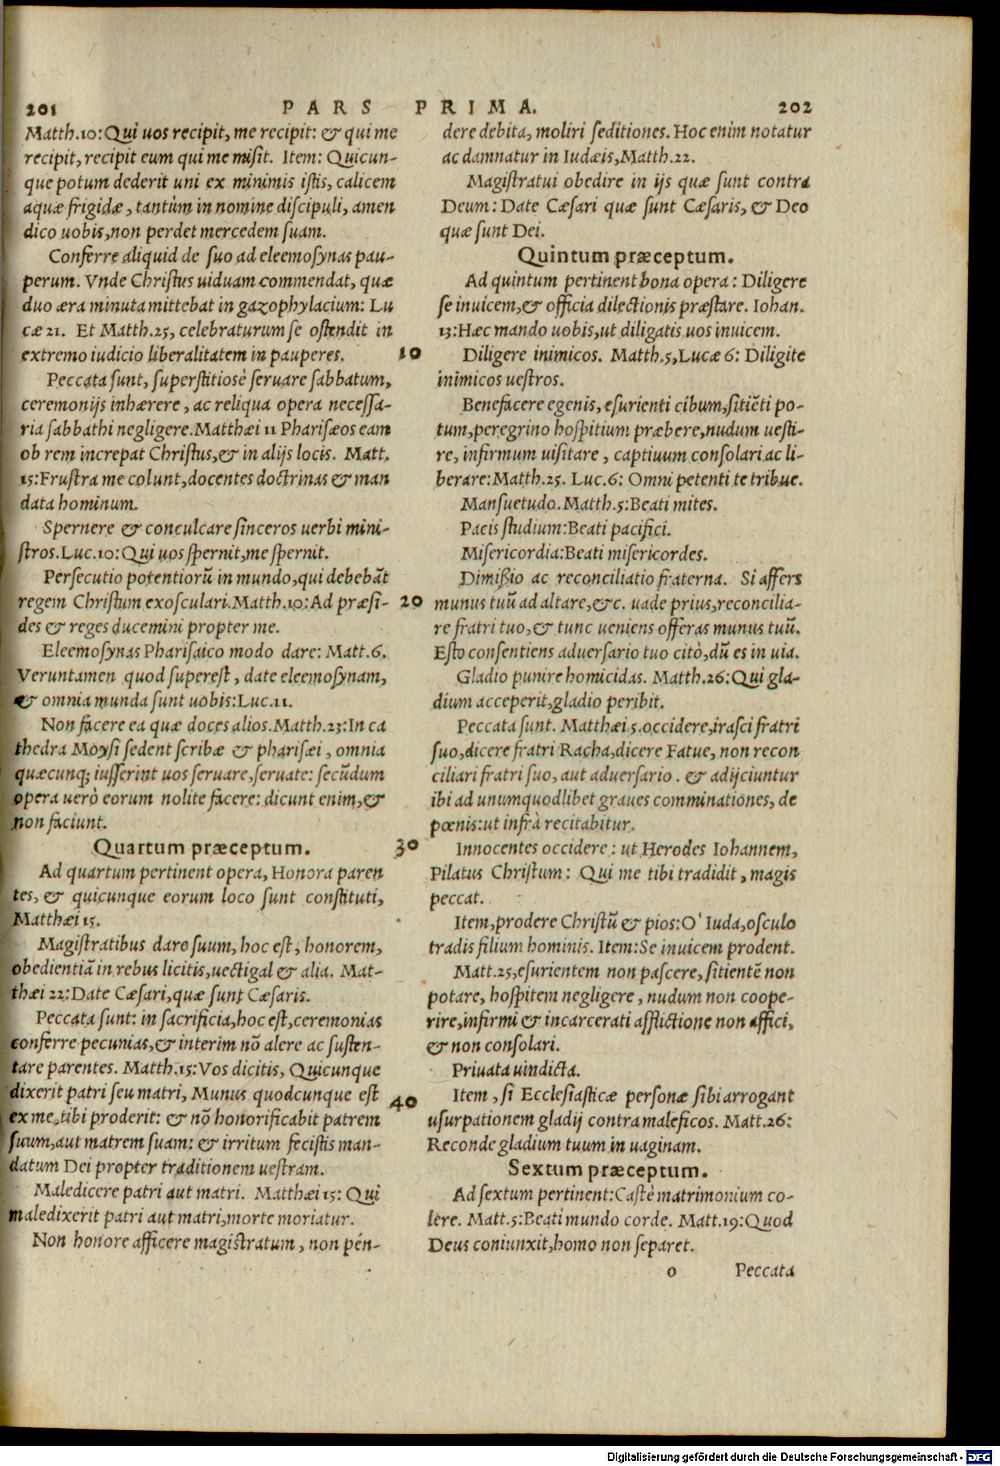 201 PARS PRIMA. 202
Matth.10: Qui uos recipit, me recipit: & qui me
recipit, recipit eum qui me misit. Item: Quicun-
que potum dederit uni ex minimis istis, calicem
aquæ frigidæ, tantùm in nomine discipuli, amen
dico uobis, non perdet mercedem suam.
Conferre aliquid de suo ad eleemosynas pau-
perum. Vnde Christus uiduam commendat, quæ
duo æra minuta mittebat in gazophylacium: Lu
cæ 21. Et Matth.25, celebraturum se ostendit in
extremo iudicio liberalitatem in pauperes.
10
Peccata sunt, superstitiosè seruare sabbatum,
ceremonijs inhærere, ac reliqua opera necessa-
ria sabbathi negligere. Matthæi 11 Pharisæos eam
ob rem increpat Christus, & in alijs locis. Matt.
15: Frustra me colunt, docentes doctrinas & man
data hominum.
Spernere & conculcare sinceros uerbi mini-
stros. Luc.10: Qui uos spernit, me spernit.
Persecutio potentiorũ in mundo, qui debebãt
regem Christum exosculari. Matth.10: Ad præsi-
20
des & reges ducemini propter me.
Eleemosynas Pharisaico modo dare: Matt.6.
Veruntamen quod superest, date eleemosynam,
& omnia munda sunt uobis: Luc.11.
Non facere ea quæ doces alios. Matth.23: In ca
thedra Moysi sedent scribæ & pharisæi, omnia
quæcunq; iusserint uos seruare, seruate: secũdum
opera uerò eorum nolite facere: dicunt enim, &
non faciunt.
Quartum præceptum.
30
Ad quartum pertinent opera, Honora paren
tes, & quicunque eorum loco sunt constituti,
Matthæi 15.
Magistratibus dare suum, hoc est, honorem,
obedientiã in rebus licitis, uectigal & alia. Mat-
thæi 22: Date Cæsari, quæ sunt Cæsaris.
Peccata sunt: in sacrificia, hoc est, ceremonias
conferre pecunias, & interim nõ alere ac susten-
tare parentes. Matth.15: Vos dicitis, Quicunque
dixerit patri seu matri, Munus quodcunque est
40
ex me, tibi proderit: & nõ honorificabit patrem
suum, aut matrem suam: & irritum fecistis man-
datum Dei propter traditionem uestram.
Maledicere patri aut matri. Matthæi 15: Qui
maledixerit patri aut matri, morte moriatur.
Non honore afficere magistratum, non pén-
dere debita, moliri seditiones. Hoc enim notatur
ac damnatur in Iudæis, Matth.22.
Magistratui obedire in ijs quæ sunt contra
Deum: Date Cæsari quæ sunt Cæsaris, & Deo
quæ sunt Dei.
Quintum præceptum.
Ad quintum pertinent bona opera: Diligere
se inuicem, & officia dilectionis præstare. Iohan.
13: Hæc mando uobis, ut diligatis uos inuicem.
Diligere inimicos. Matth.5, Lucæ 6: Diligite
inimicos uestros.
Benefacere egenis, esurienti cibum, sitiẽti po-
tum, peregrino hospitium præbere, nudum uesti-
re, infirmum uisitare, captiuum consolari ac li-
berare: Matth.25. Luc.6: Omni petenti te tribue.
Mansuetudo. Matth.5: Beati mites.
Pacis studium: Beati pacifici.
Misericordia: Beati misericordes.
Dimißio ac reconciliatio fraterna. Si affers
munus tuũ ad altare, &c. uade prius, reconcilia-
re fratri tuo, & tunc ueniens offeras munus tuũ.
Esto consentiens aduersario tuo citò, dũ es in uia.
Gladio punire homicidas. Matth.26: Qui gla-
dium acceperit, gladio peribit.
Peccata sunt. Matthæi 5. occidere, irasci fratri
suo, dicere fratri Racha, dicere Fatue, non recon
ciliari fratri suo, aut aduersario. & adijciuntur
ibi ad unumquodlibet graues comminationes, de
pœnis: ut infrà recitabitur.
Innocentes occidere: ut Herodes Iohannem,
Pilatus Christum: Qui me tibi tradidit, magis
peccat.
Item, prodere Christũ & pios: O' Iuda, osculo
tradis filium hominis. Item: Se inuicem prodent.
Matt.25, esurientem non pascere, sitientẽ non
potare, hospitem negligere, nudum non coope-
rire, infirmi & incarcerati afflictione non affici,
& non consolari.
Priuata uindicta.
Item, si Ecclesiasticæ personæ sibi arrogant
usurpationem gladij contra maleficos. Matt.26:
Reconde gladium tuum in uaginam.
Sextum præceptum.
Ad sextum pertinent: Castè matrimonium co-
lere. Matt.5: Beati mundo corde. Matt.19: Quod
Deus coniunxit, homo non separet.
o Peccata
Digitalisierung gefördert durch die Deutsche Forschungsgemeinschaft - DFG